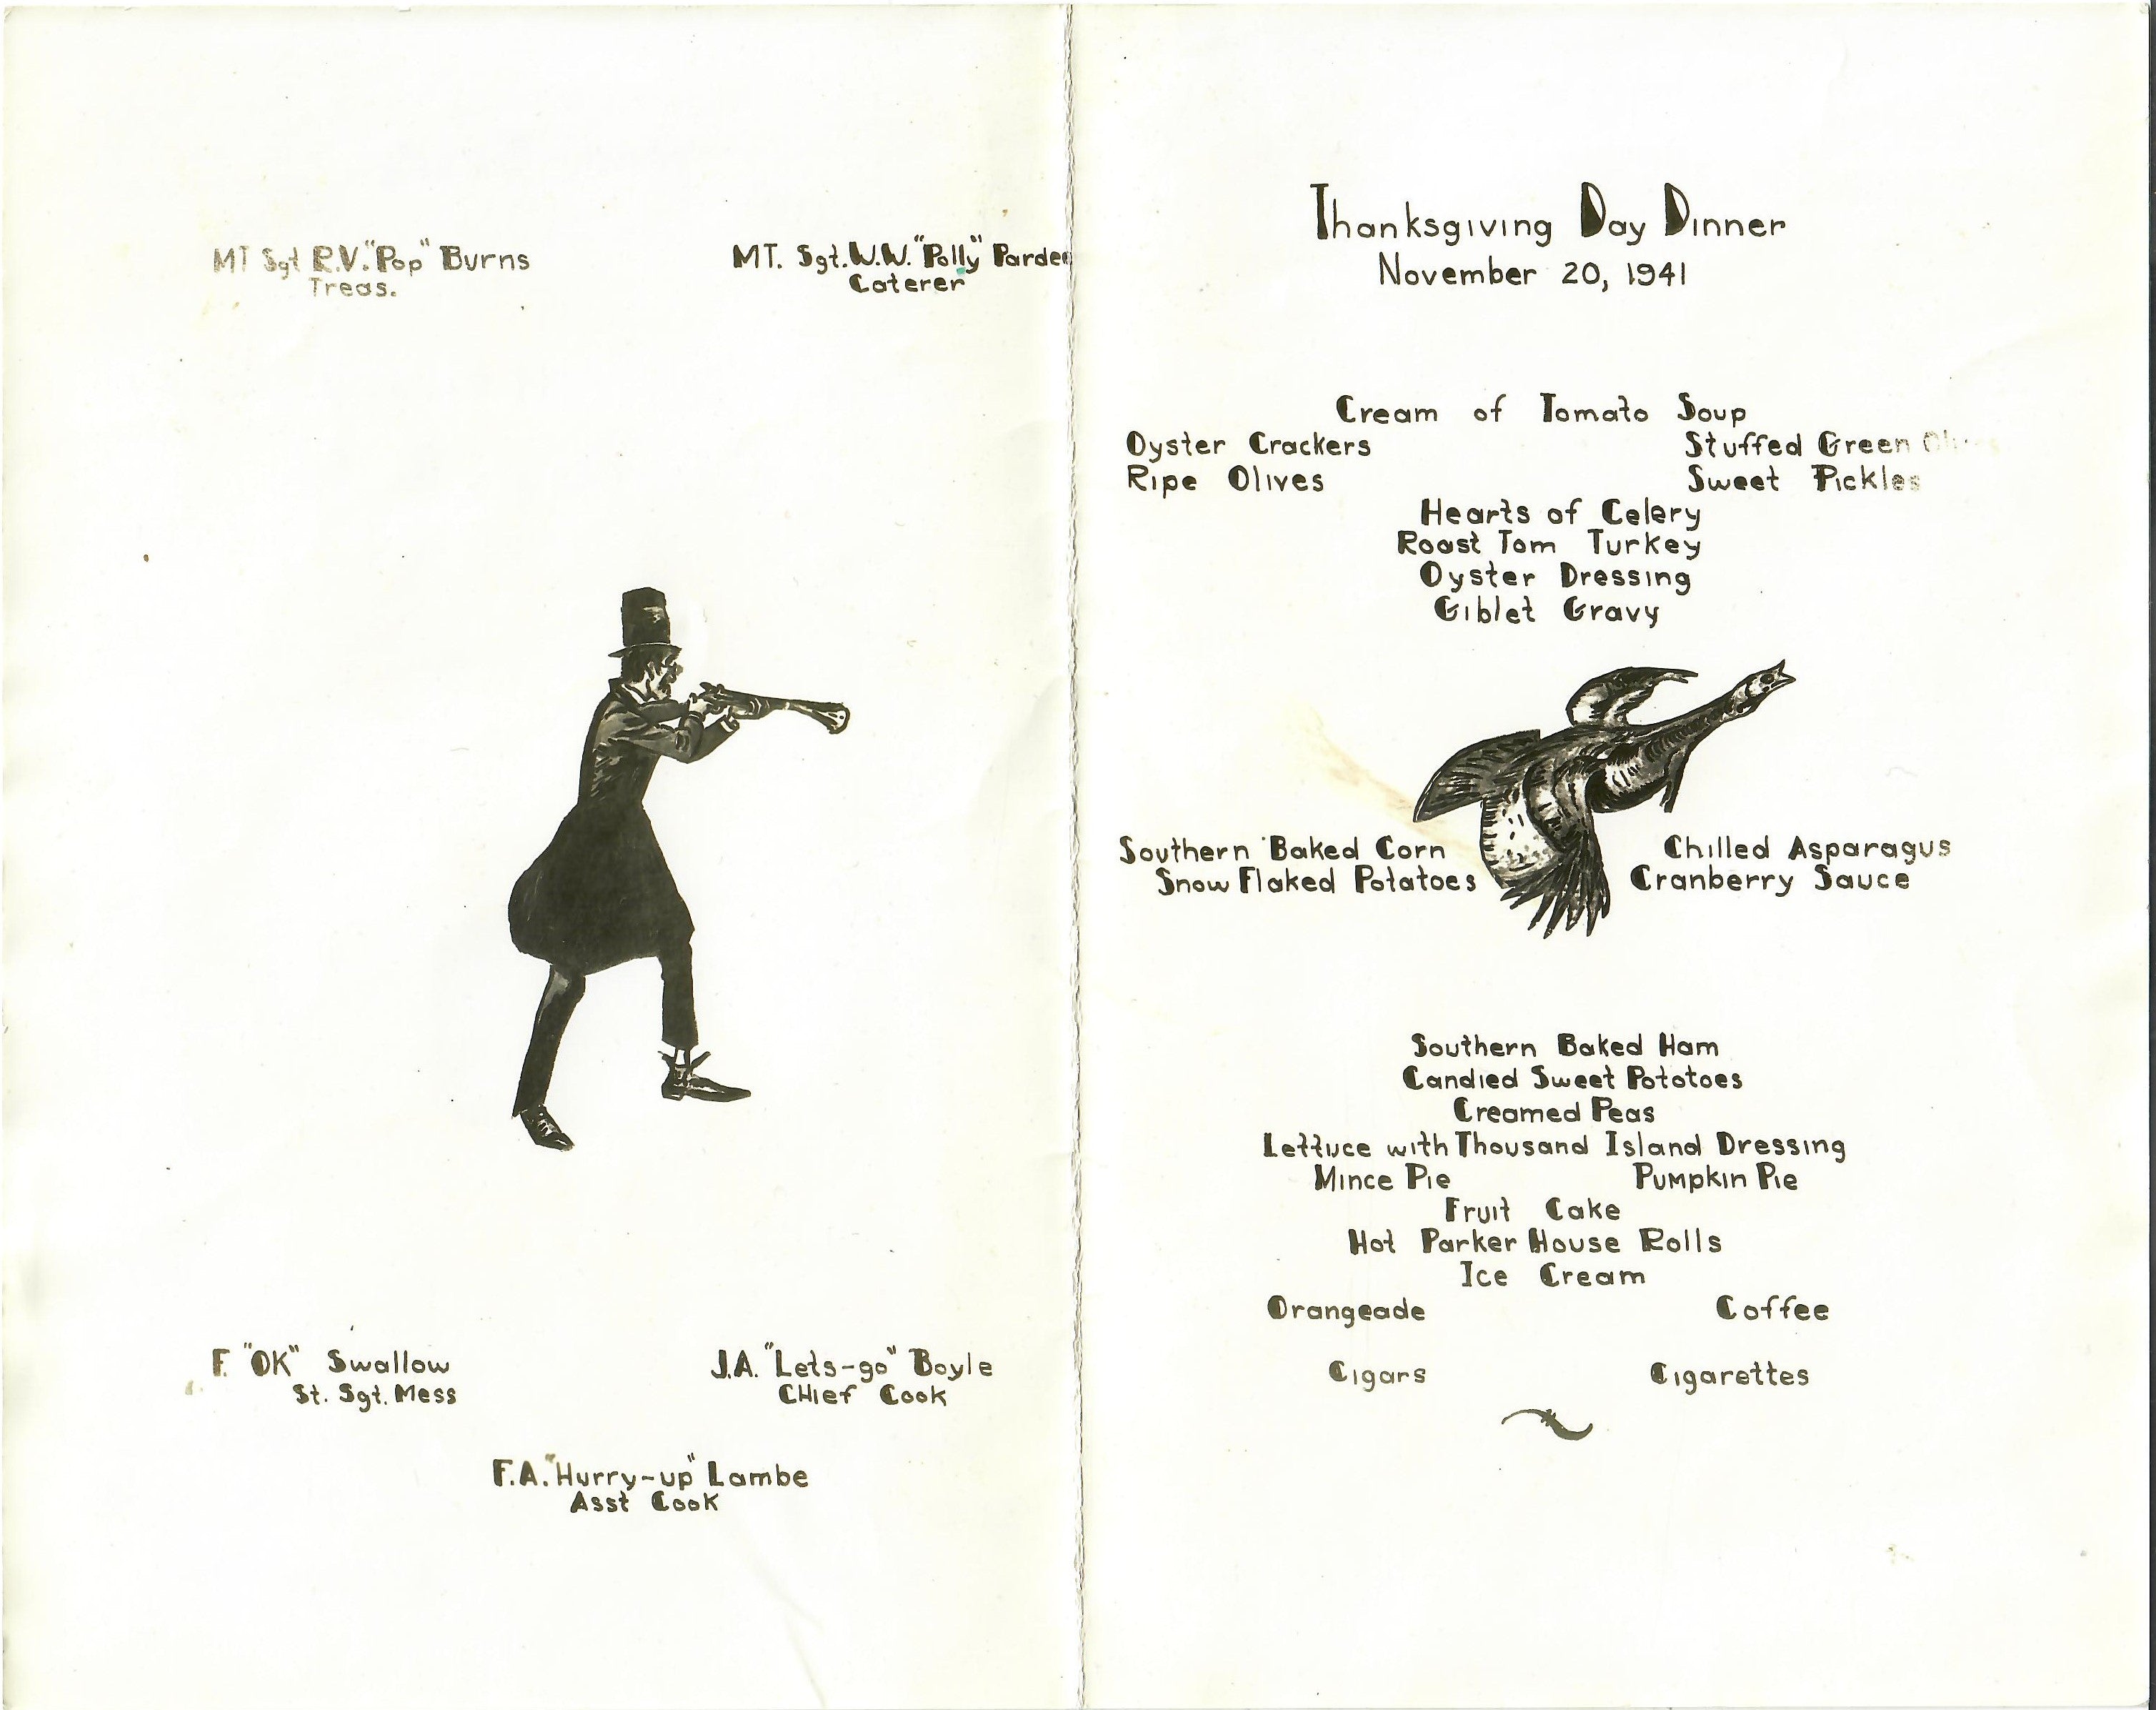 MT Sgt R.V. "Pop" Burns
Treas.
MT. Sgt. W.W. "Polly" Pardee
Caterer
F. "OK" Swallow
St. Sgt. Mess
J.A. "Lets-go" Boyle
CHief Cook
F.A. "Hurry-up" Lambe
Asst Cook
Thanksgiving Day Dinner
November 20, 1941
Cream of Tomato Soup
Oyster Crackers Stuffed Green Olives
Ripe Olives Sweet Pickles
Hearts of Celery
Roast Tom Turkey
Oyster Dressing
Giblet Gravy
Southern Baked Corn Chilled Asparagus
Snow Flaked Potatoes Cranberry Sauce
Southern Baked Ham
Candied Sweet Pototoes
Creamed Peas
Lettuce with Thousand Island Dressing
Mince Pie Pumpkin Pie
Fruit Cake
Hot Parker House Rolls
Ice Cream
Orangeade Coffee
Cigars Cigarettes